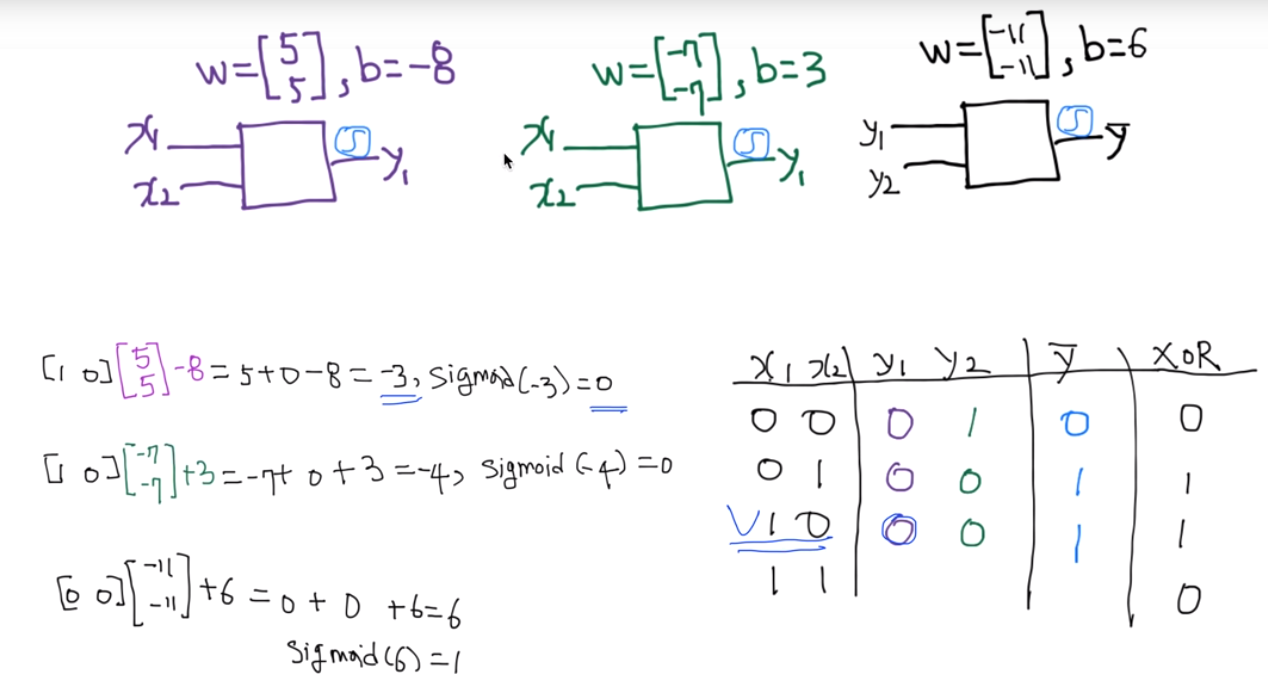 w=[5 5], b=-8
w=[-7 -7], b=3
w=[-11 -11], b=6
x1 x2 S y1
x1 x2 S y1
y1 y2 S ȳ
[1 0][5 5]-8=5+0-8=-3, sigmoid(-3)=0
[1 0][-7 -7]+3=-7+0+3=-4, sigmoid(-4)=0
[0 0][-11 -11]+6=0+0+6=6
Sigmoid(6)=1
x1 x2 y1 y2 ȳ XOR
0 0 0 1 0 0
0 1 0 0 1 1
V 1 0 0 0 1 1
1 1 0